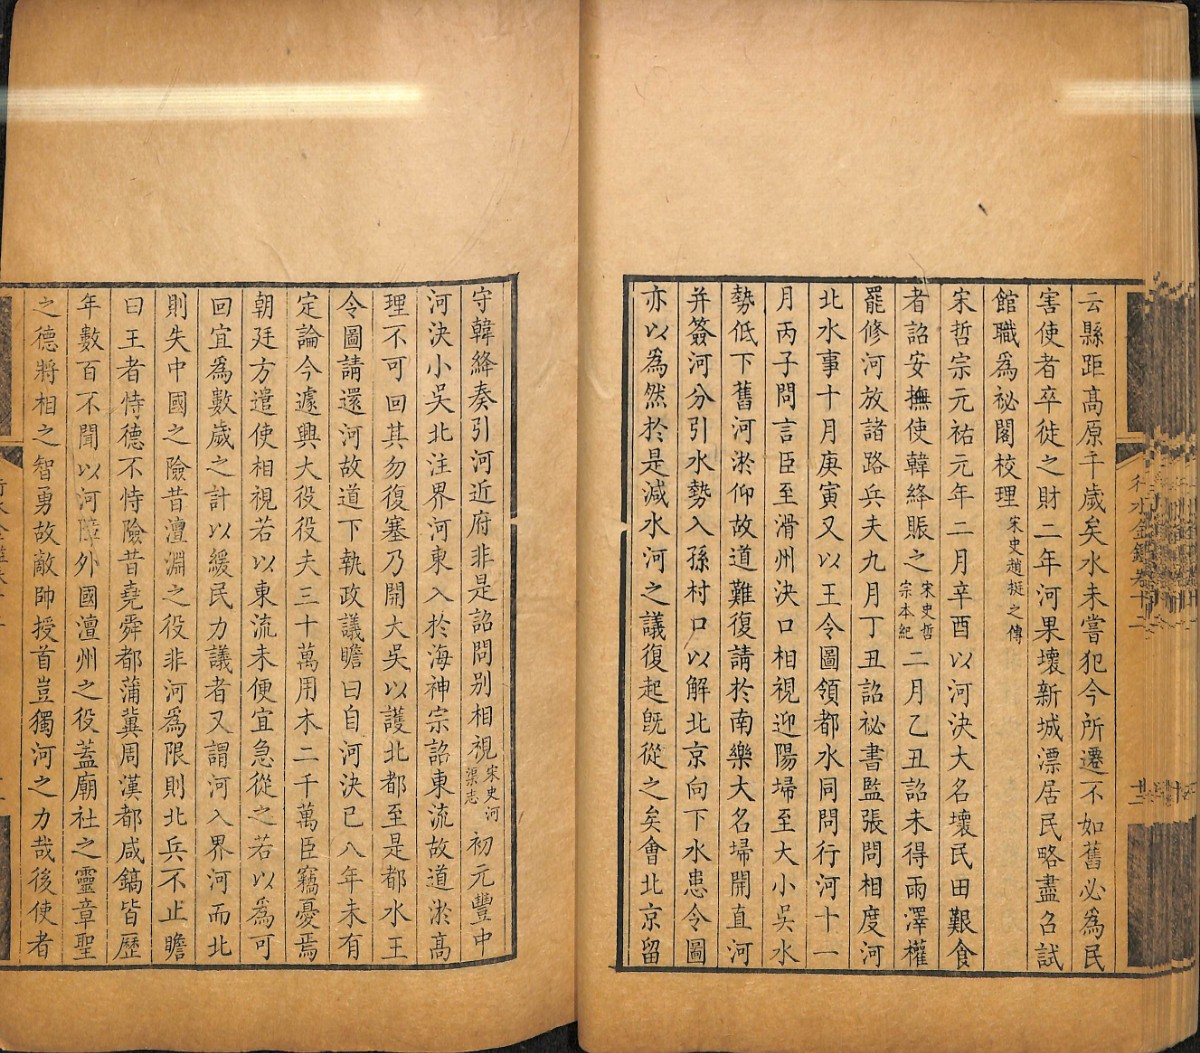 云縣距高原千歲矣水未嘗犯今所遷不如舊必爲民
害使者卒徙之財二年河果壞新城漂居民略盡召試
館職爲祕閣校理宋史趙挺之傳
宋哲宗元祐元年二月辛酉以河決大名壞民田艱食
者詔安撫使韓絳賑之宋史哲宗本紀二月乙丑詔未得雨澤權
罷修河放諸路兵夫九月丁丑詔祕書監張問相度河
北水事十月庚寅又以王令圖領都水同問行河十一
月丙子問言臣至滑州決口相視迎陽埽至大小吳水
勢低下舊河淤仰故道難復請於南樂大名埽開直河
并簽河分引水勢入孫村口以解北京向下水患令圖
亦以爲然於是減水河之議復起旣從之矣會北京留
守韓絳奏引河近府非是詔問別相視宋史河渠志初元豐中
河決小吳北注界河東入於海神宗詔東流故道淤高
理不可回其勿復塞乃開大吳以護北都至是都水王
令圖請還河故道下執政議瞻曰自河決已八年未有
定論今遽興大役役夫三十萬用木二千萬臣竊憂焉
朝廷方遣使相視若以東流未便宜急從之若以爲可
回宜爲數歲之計以緩民力議者又謂河入界河而北
則失中國之險昔澶淵之役非河爲限則北兵不止瞻
曰王者恃德不恃險昔堯舜都蒲冀周漢都咸鎬皆歷
年數百不聞以河障外國澶州之役蓋廟社之靈章聖
之德將相之智勇故敵帥授首豈獨河之力哉後使者